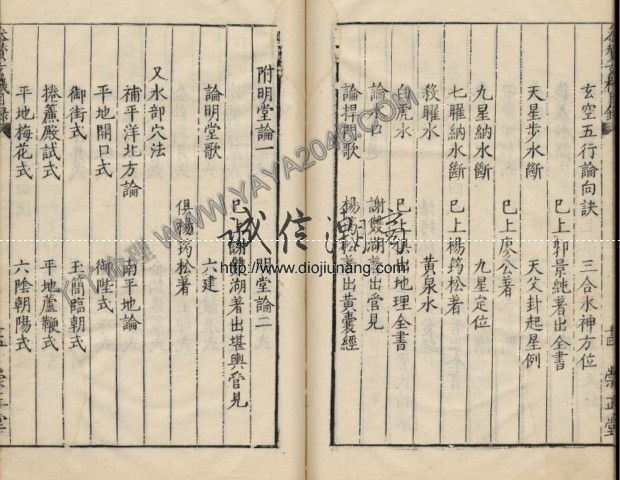 玄空五行論向訣 三合水神方位
已上郭景純著出全書
天星步水斷 天父卦起星例
已上廖公著
九星納水斷 九星定位
七曜納水斷 已上楊筠松著
救曜水 黃泉水
白虎水 已上俱出地理全書
論水口 謝雙湖著出管見
論捍門歌 楊筠松著出黃囊經
附明堂論一 明堂論二
已上謝雙湖著出堪輿管見
論明堂歌 六建
俱陽筠松著
又水部穴法
補平洋北方論 南平地論
平地開口式 御陛式
御街式 玉簡臨朝式
捲簾殿試式 平地蘆鞭式
平地梅花式 六陰朝陽式
崇正堂
誠信
http://www.diojiunang.com
WWW.YAYA2046.COM